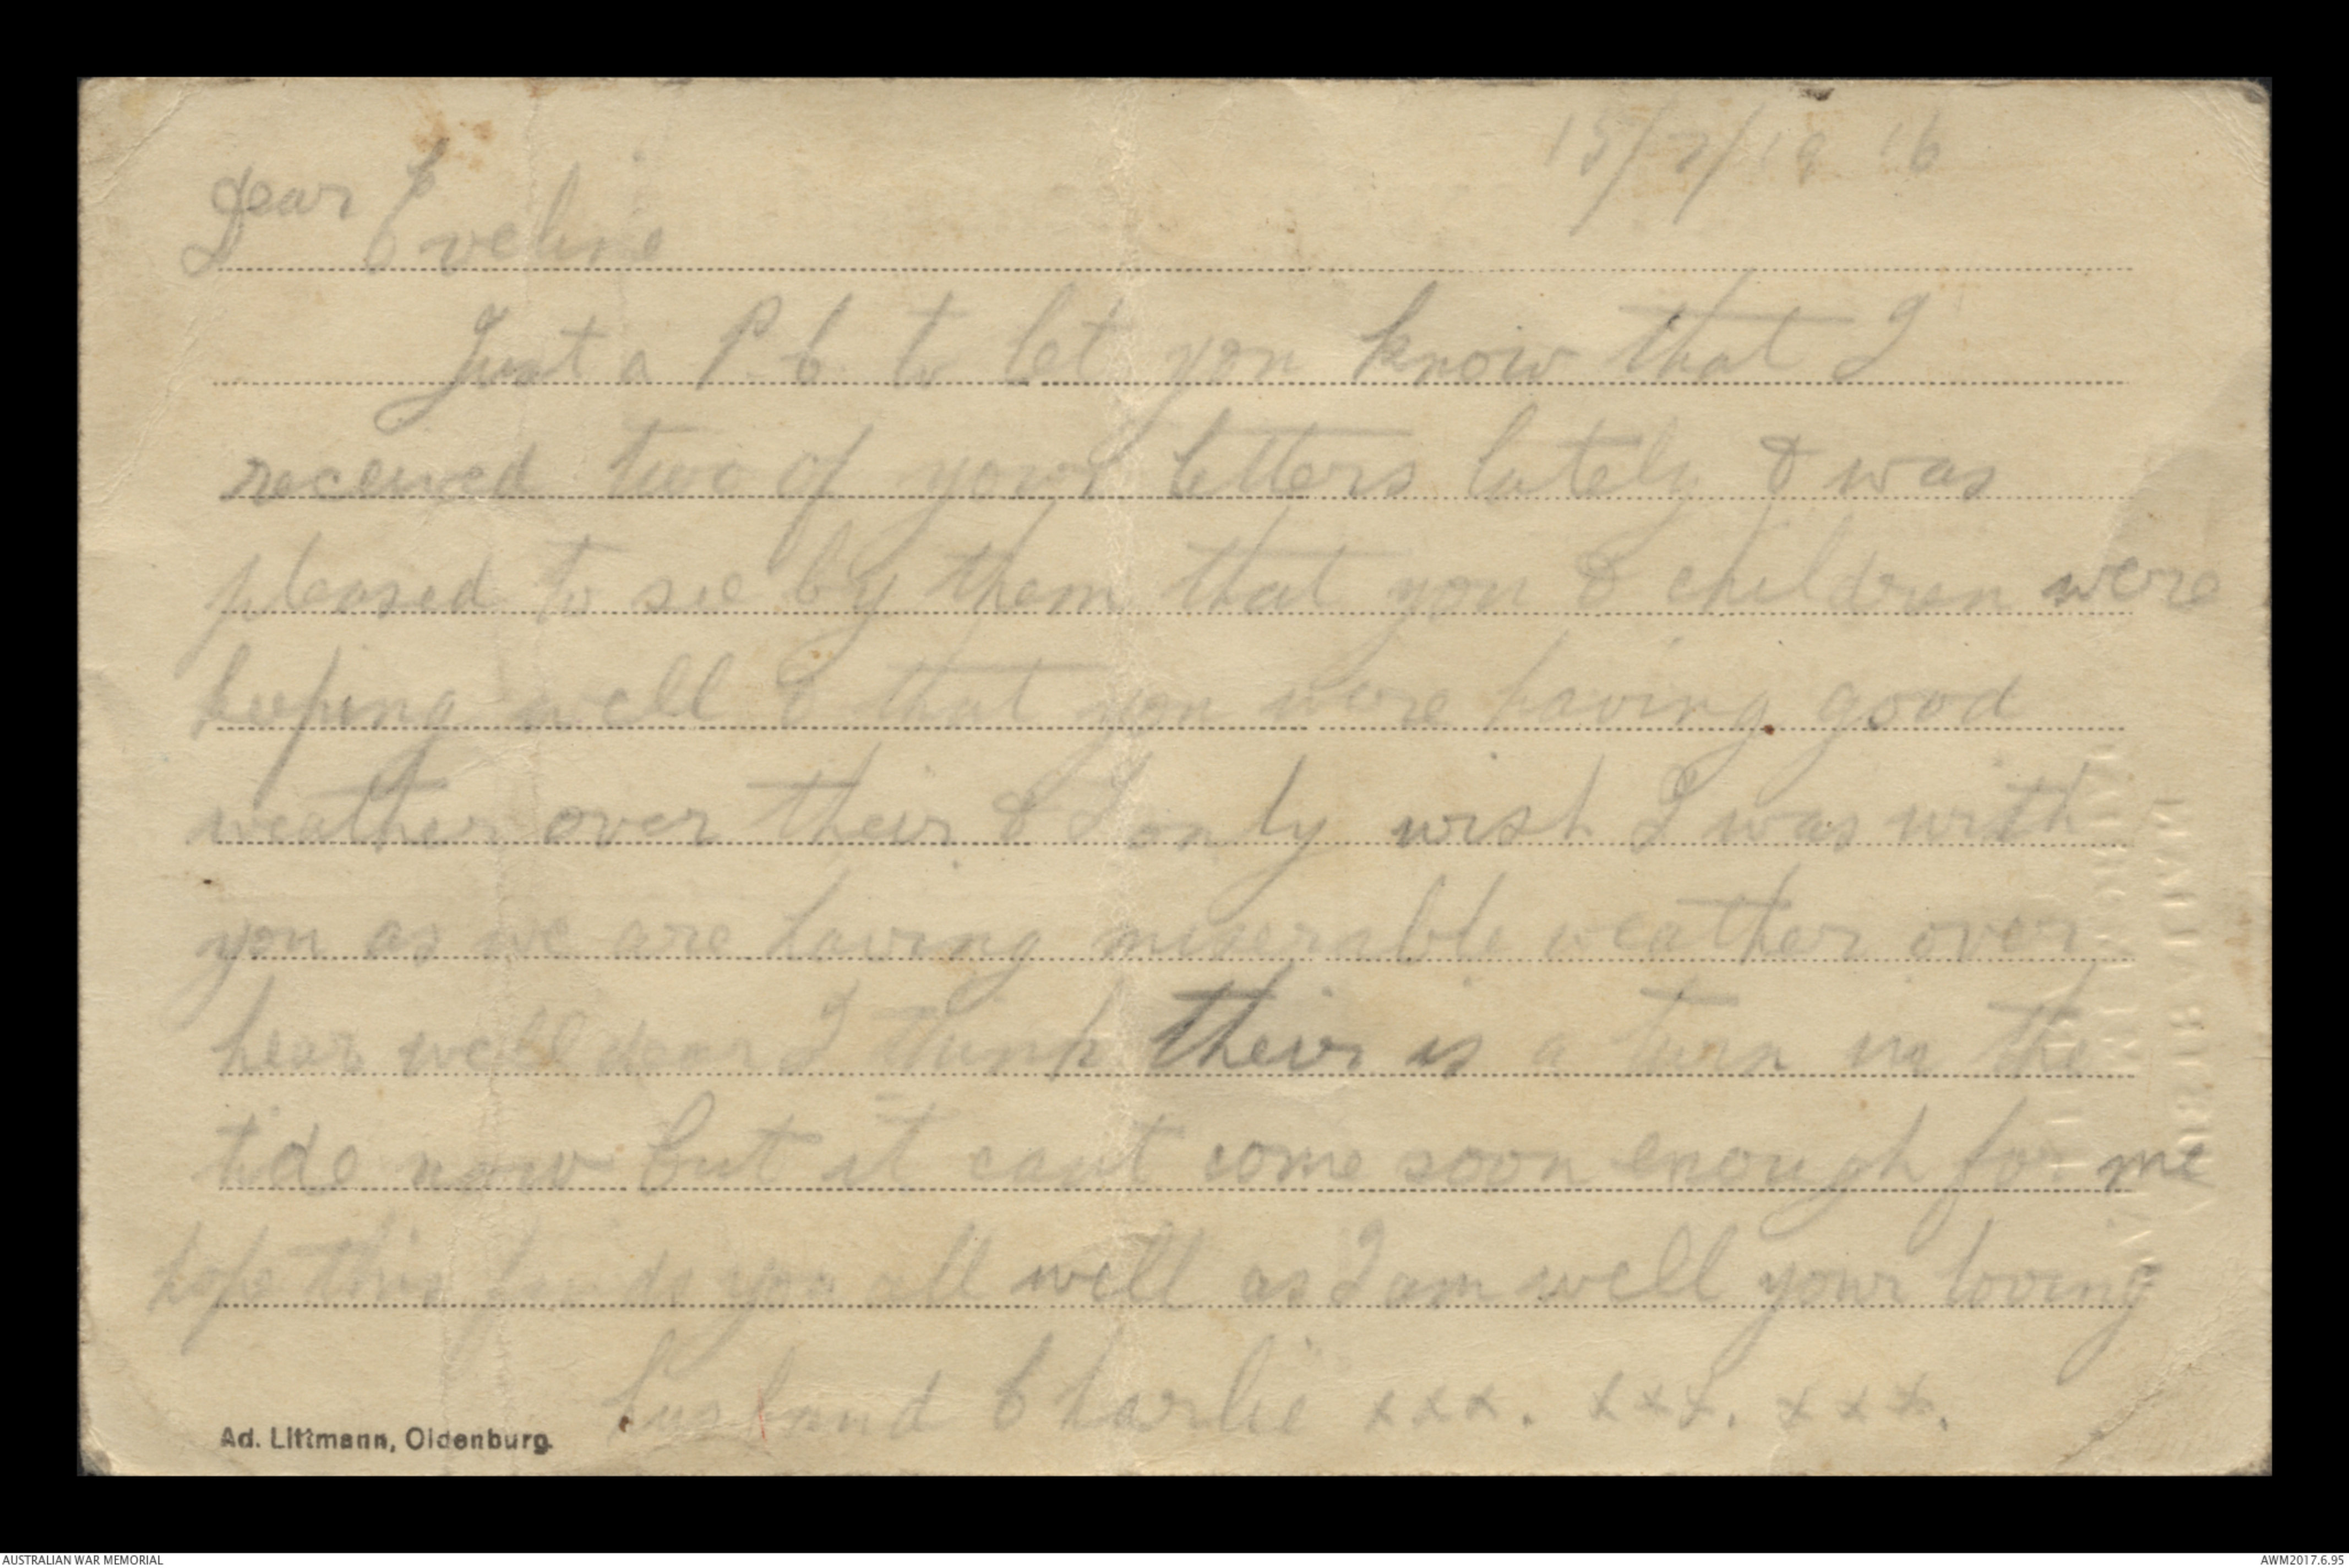 15/7/1916
Dear Eveline
Just a P.C. to let you know that I
received two of your letters lately & was
pleased to see by them that you & children were
keeping well & that you were having good
weather over their & I only wish I was with
you as we are having miserable weather over
hear well dear I think their is a turn in the
tide now but it cant come soon enough for me
hope this finds you all well as I am well your loving
husband Charlie xxx. xxx. xxx.
Ad. Littmann, Oldenburg.
AUSTRALIAN WAR MEMORIAL
AWM2017.6.95